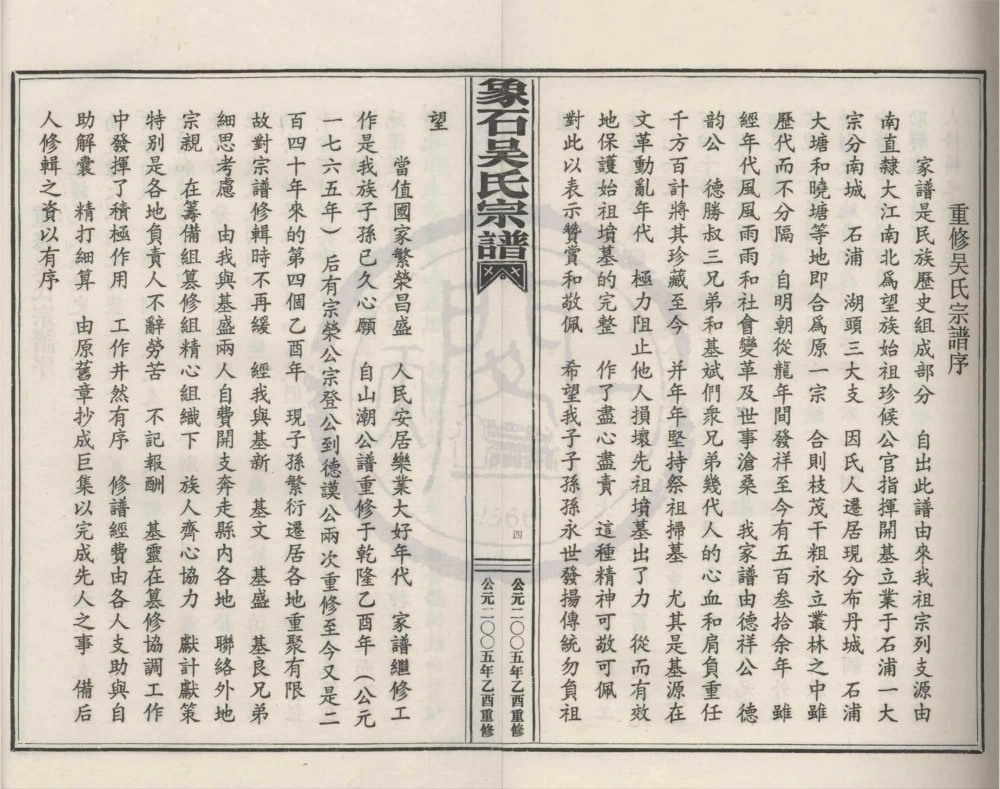 重修吴氏宗譜序
家譜是民族歷史組成部分　自出此譜由來我祖宗列支源由
南直隸大江南北爲望族始祖珍候公官指揮開基立業于石浦一大
宗分南城　石浦　湖頭三大支　因氏人遷居現分布丹城　石浦
大塘和曉塘等地即合爲原一宗　合則枝茂干粗永立叢林之中雖
歷代而不分隔　自明朝從龍年間發祥至今有五百叁拾余年　雖
經年代風風雨雨和社會變革及世事滄桑　我家譜由德祥公　德
韵公　德勝叔三兄弟和基斌們衆兄弟幾代人的心血和肩負重任
千方百計將其珍藏至今　并年年堅持祭祖掃墓　尤其是基源在
文革動亂年代　極力阻止他人損壞先祖墳墓出了力　從而有效
地保護始祖墳墓的完整　作了盡心盡責　這種精神可敬可佩
對此以表示贊賞和敬佩　希望我子子孫孫永世發揚傳統勿負祖
象石吴氏宗譜
四
公元二〇〇五年乙酉重修
公元二〇〇五年乙酉重修
望
當值國家繁榮昌盛　人民安居樂業大好年代　家譜繼修工
作是我族子孫已久心願　自山潮公譜重修于乾隆乙酉年（公元
一七六五年）后有宗榮公宗登公到德謨公兩次重修至今又是二
百四十年來的第四個乙酉年　現子孫繁衍遷居各地重聚有限
故對宗譜修輯時不再緩　經我與基新　基文　基盛　基良兄弟
細思考慮　由我與基盛兩人自費開支奔走縣内各地　聯絡外地
宗親　在籌備組篡修組精心組織下　族人齊心協力　獻計獻策
特别是各地負責人不辭勞苦　不記報酬　基靈在篡修協調工作
中發揮了積極作用　工作井然有序　修譜經費由各人支助與自
助解囊　精打細算　由原舊章抄成巨集以完成先人之事　備后
人修輯之資以有序